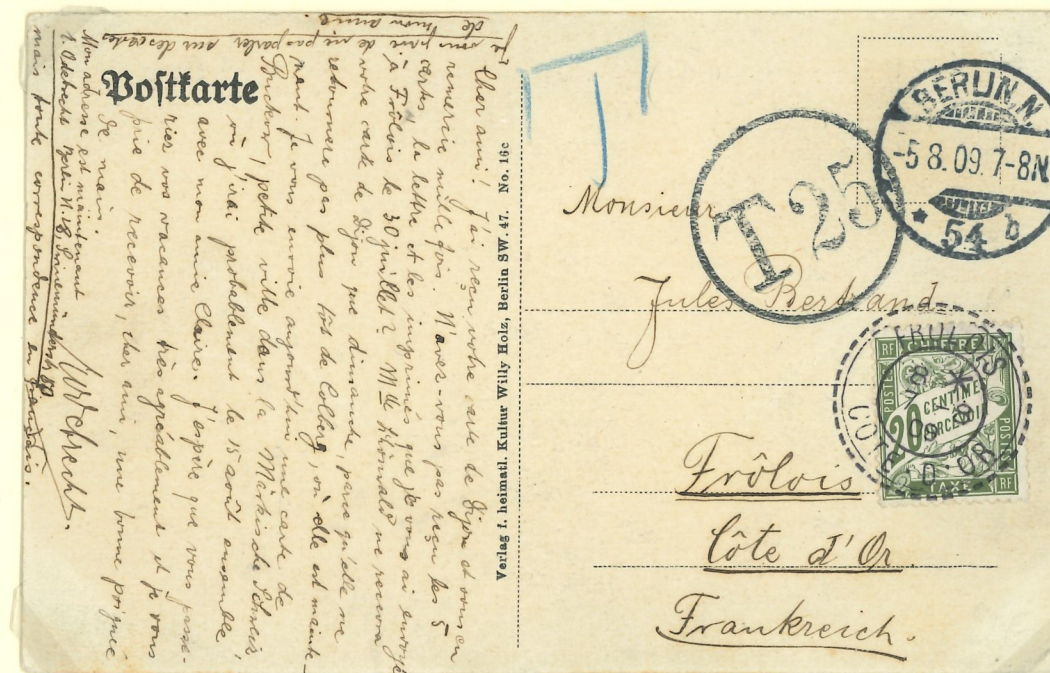 Postkarte
Je vous prie de ne pas parler sur des cartes
de mon amie
Cher ami! J'ai reçu votre carte de Dijon et vous en
remercie mille fois. N'avez-vous pas reçu les 5
cartes, la lettre et les imprimés que je vous ai envoyé
à Frôlois le 30 juillet? Mlle ne recevra
votre carte de Dijon que dimanche, parce qu'elle ne
retournera pas plus tôt de Colberg, où elle est mainte-
nant. Je vous envoie aujourd'hui une carte de
Buckow, petite ville dans la Märkische Schweiz
où j'irai probablement le 15 août ensemble
avec mon amie Claire. J'espère que vous passe-
riez vos vacances très agréablement et je vous
prie de recevoir, cher ami, une bonne poignée
de main.
W.
Mon adresse est maintenant
Berlin N. 28, Swinemünderstr.
mais toute correspondance en français.
Verlag f. heimatl. Kultur Willy Holz, Berlin SW. 47. No. 16c
T
T 25
BERLIN. N.
-5 8.09. 7-8N.
* 54 b
Monsieur
Jules Bertrand
Frôlois
Côte d'Or.
Frankreich.
FROLOIS
COTE D'OR
RF
POSTES
20
CENTIMES
A PERCEVOIR
TAXE
RF